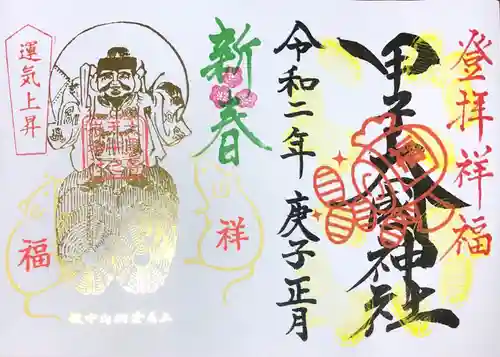 登拝祥福
甲子大
神社
令和二年 庚子正月
新春
祥
運気上昇
福